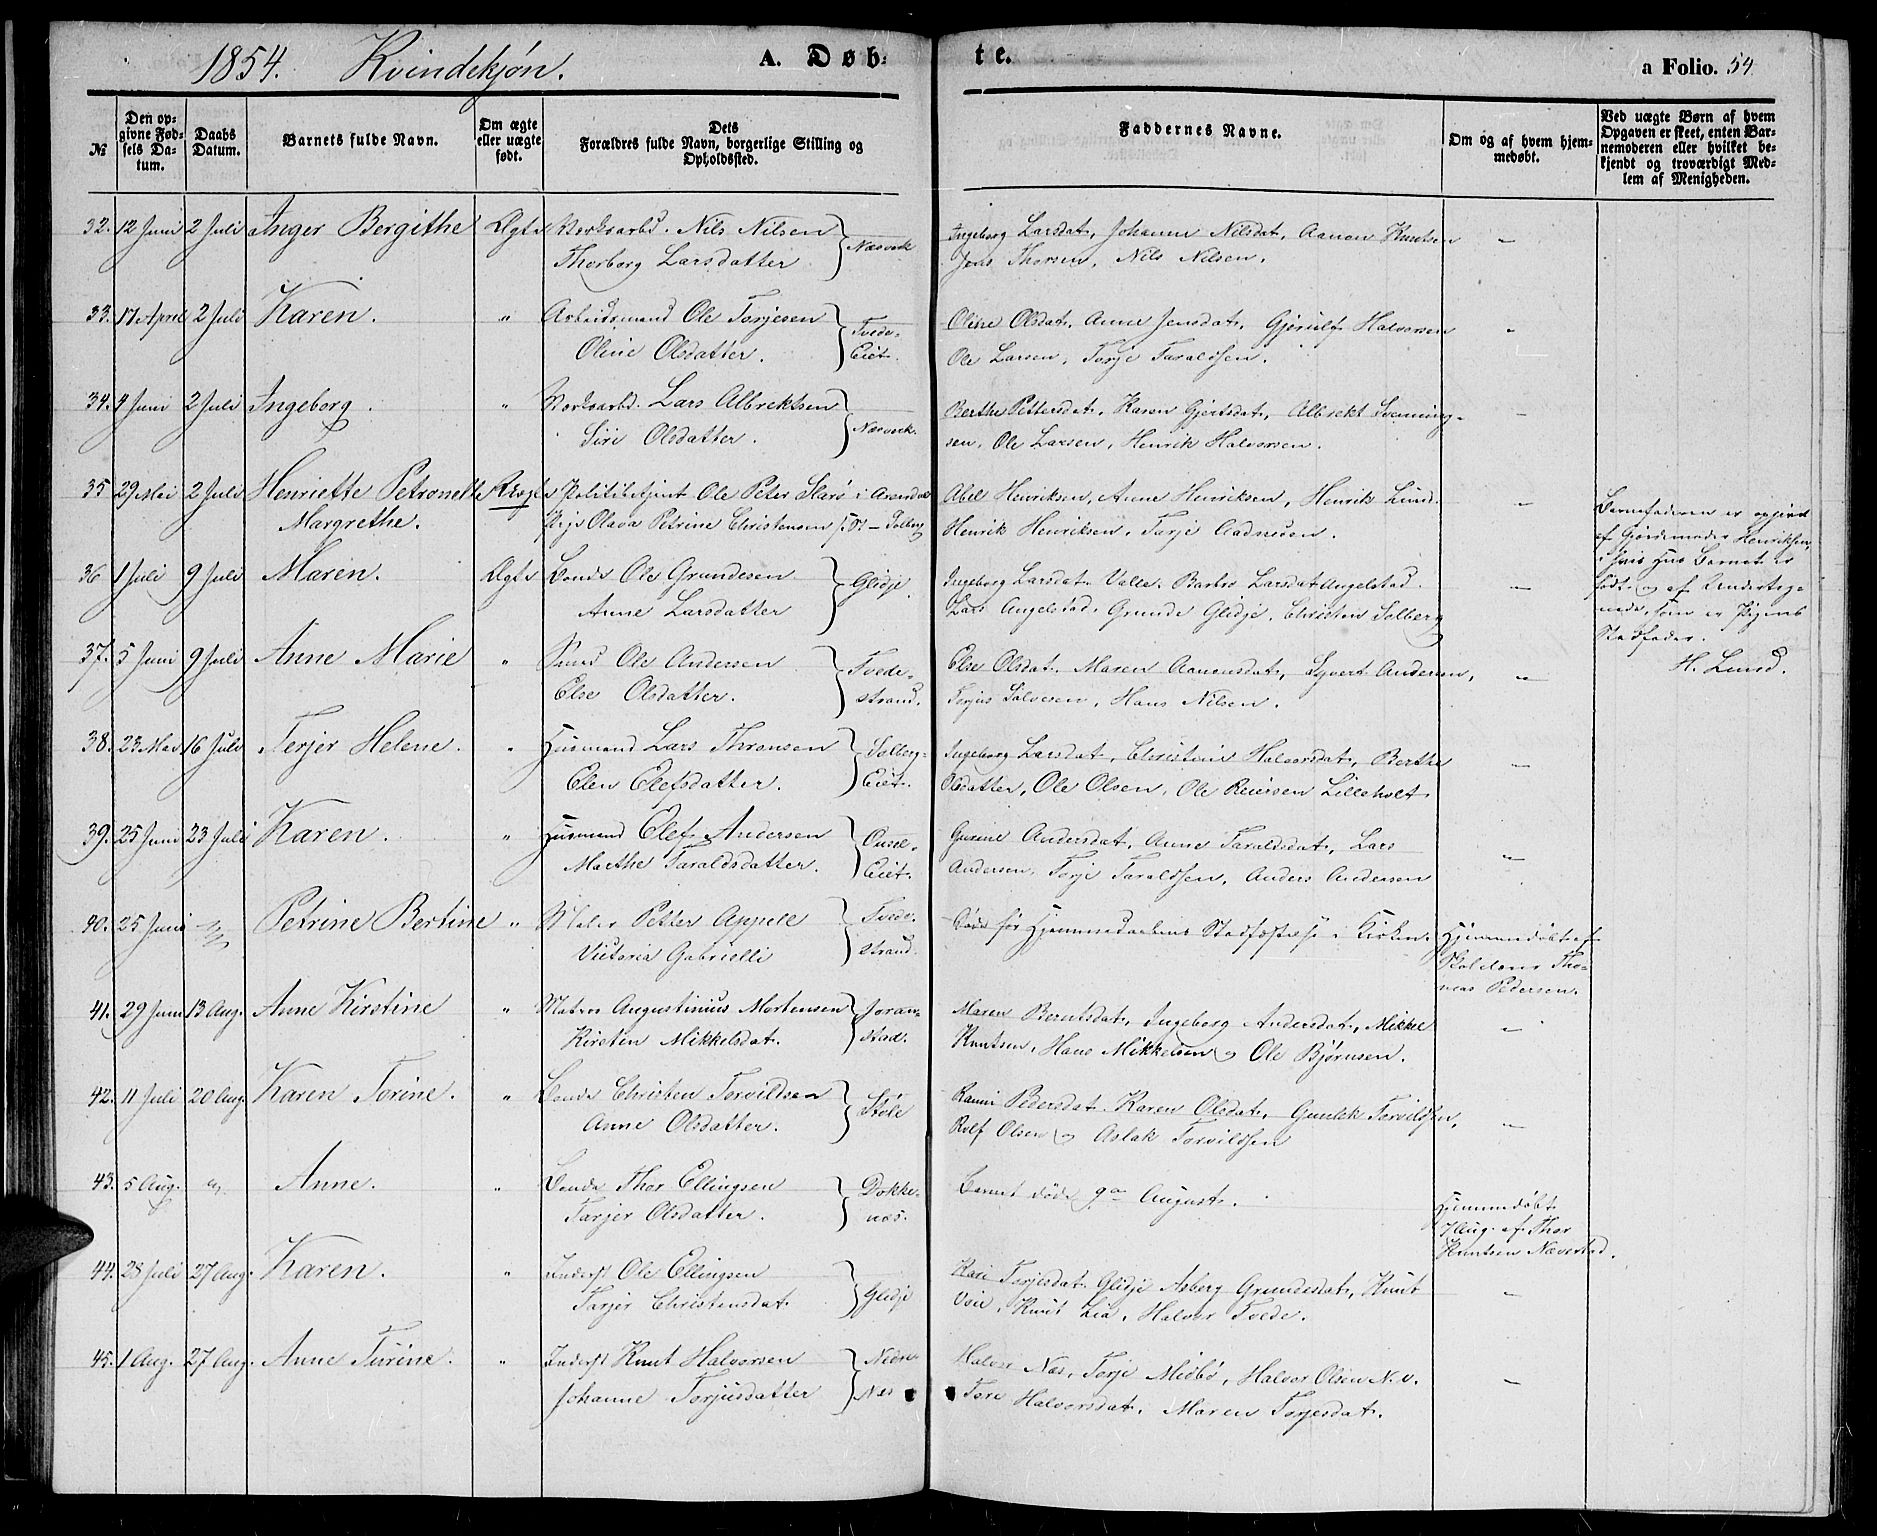 1854. Kvindekjøn. A. Døb- te. a Folio. 54
№ | Den opgivne Fødsels Datum. | Daabs Datum. | Barnets fulde Navn. | Om ægte eller uægte født. | Dets Forældres fulde Navn, borgerlige Stilling og Opholdssted. | Faddernes Navne. | Om og af hvem hjemmedøbt. | Ved uægte Børn af hvem Opgaven er skeet, enten Barnemoderen eller hvilket bekjendt og troværdigt Medlem af Menigheden.
32. 12 Juni 2 Juli Inger Bergithe Ægte Værksarbd. Nils Nilsen } Næsverk Ingeborg Larsdat, Johanne Nilsdat, Aanon Knutsen "
Thorborg Larsdatter Jens Thorsen, Nils Nilsen.
33. 17 April 2 Juli Karen. " Arbeidsmand Ole Torjesen } Tvede- Oline Olsdat, Anne Jensdat, Gjerulf Halvorsen "
Oline Olsdatter. Eiet. Ole Larsen, Torje Taraldsen.
34. 4 Juni 2 Juli Ingeborg. " Værksarbd. Lars Albrektsen } Næsverk. Berthe Pettersdat, Karen Gjertsdat, Albrekt Svenning- "
Siri Olsdatter. sen, Ole Larsen, Henrik Halvorsen.
35 29 Mai 2 Juli Henriette Petronelle Uægte Politibtjent Ole Peter Skarø i Arendal Abel Henriksen, Anne Henriksen, Henrik Lund "
Margrethe. Pige Olava Petrine Christensen Solberg Henrik Henriksen, Terje Aadnesen.
Barnefaderen er opgivet
af Gjordemoder Henriksen,
i hvis Hus Barnet er
født og af Underteg-
nede, som er Pigens
Stedfader.
H. Lund.
36 1 Juli 9 Juli Maren. Ægte Bonde Ole Grundesen } Glidje. Ingeborg Larsdat Valle. Barbro Larsdat Angelstad. "
Anne Larsdatter Lars Angelstad, Grunde Glidje, Christen Solberg
37. 5 Juni 9 Juli Anne Marie " Smed Ole Andersen } Tvede- Else Olsdat, Maren Aanonsdat, Syvert Andersen, "
Else Olsdatter. strand. Torjus Salvesen, Hans Nilsen.
38. 23 Mai 16 Juli Terjer Helene. " Husmand Lars Thronsen } Solberg- Ingeborg Larsdat, Christine Halvorsdat, Berthe "
Elen Elefsdatter. Eiet. Olsdatter, Ole Olsen, Ole Reiersen Lilleholt
39. 25 Juni 23 Juli Karen. " Husmand Elef Andersen } Gurine Andersdat, Anne Taraldsdat, Lars "
Marthe Taraldsdatter. Eiet. Andersen, Torje Taraldsen, Anders Andersen
40. 25 Juni " Petrine Bertine " Maler Petter Appell } Tvede- Død før Hjemmedaabens Stadfæstelse i Kirken. Hjemmedøbt af
Victoria Gabrielli strand. Skolelærer Tho-
mas Pedersen.
41. 29 Juni 13 Aug. Anne Kirstine " Matros Augustinius Mortensen } Joran- Maren Berntsdat, Ingeborg Andersdat, Mikkel "
Kirsten Mikkelsdat. stad. Knutsen, Hans Mikkelsen og Ole Bjørnsen.
42. 11 Juli 20 Aug. Karen Torine. " Bonde Christen Torvildsen } Støle Ranni Pedersdat, Karen Olsdat, Gunlek Torvildsen, "
Anne Olsdatter. Rolf Olsen og Aslak Torvildsen
43. 5 Aug. " Anne. " Bonde Thor Ellingsen } Dokke- Barnet døde 9de August. Hjemmedøbt
Tarjer Olsdatter. næs. 7 Aug. af Thor
Knutsen Næverstad.
44. 28 Juli 27 Aug. Karen. " Inderst Ole Ellingsen } Glidje Kari Torjesdat Glidje Asberg Grundesdat, Knut "
Tarjer Christensdat Knut Lia, Halvor Tvede.
45. 1 Aug. 27 Aug. Anne Turine. " Inderst Knut Halvorsen } Nedre Halvor Næs, Torje Midbø, Halvor Olsen "
Johanne Torjusdatter Næs Tore Halvorsdat, Maren Torjesdat.